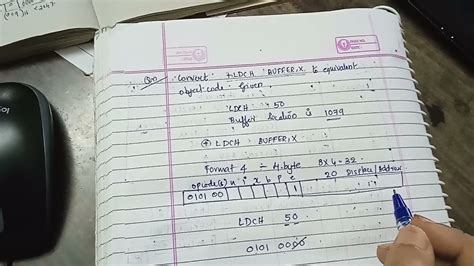 Qn) Convert +LDCH BUFFER,X to equivalent
object code. Given,
LDCH = 50
Buffer location is 1039
④ LDCH BUFFER,X
Format 4 - 4 byte 8x4=32
opcode(6) n i x b p e 20 Displace/Address
0101 00 1
LDCH 50
0101 0000